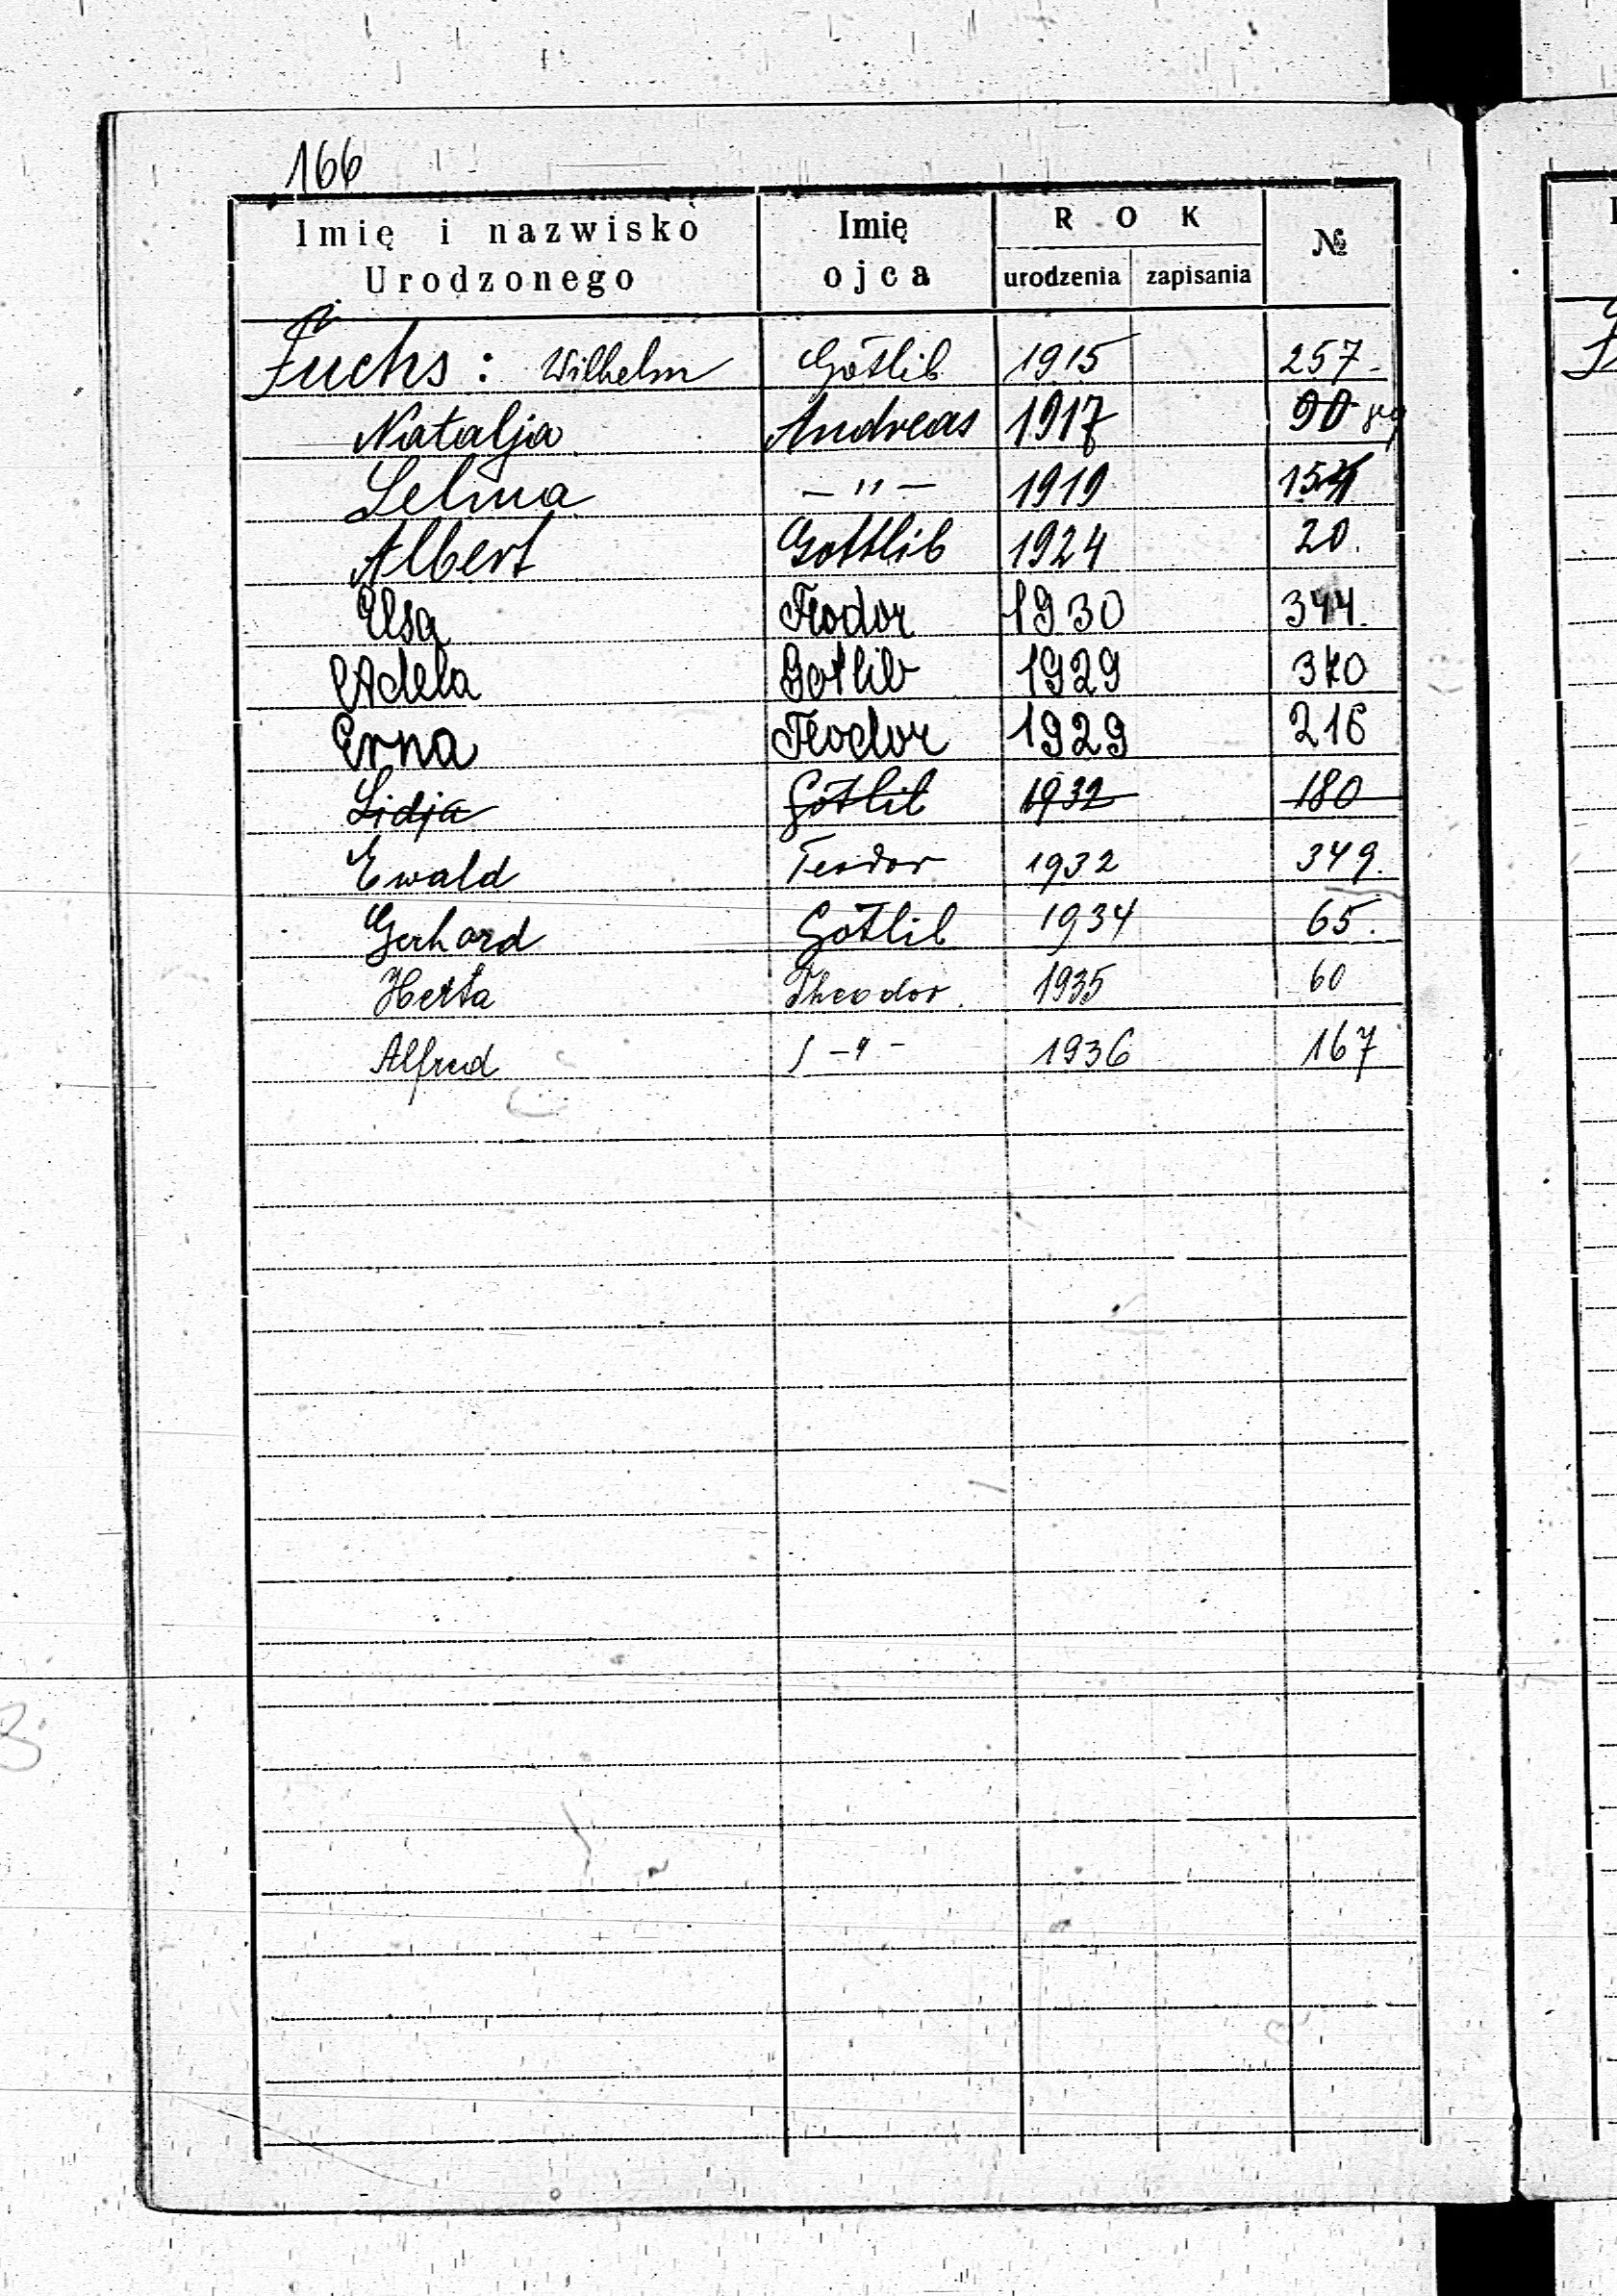 166
Imię i nazwisko Urodzonego Imię ojca ROK urodzenia zapisania №
Fuchs: Wilhelm Götlib 1915 257.
Natalja Andreas 1917 90
Selma – " – 1919 154
Albert Gottlib 1924 20.
Elsa Teodor 1930 344.
Adela Gotlib 1929 370
Erna Teodor 1929 216
Lidja Götlib 1932 180
Ewald Teodor 1932 349.
Gerhard Götlib 1934 65.
Herta Theodor. 1935 60
Alfred – " – 1936 167